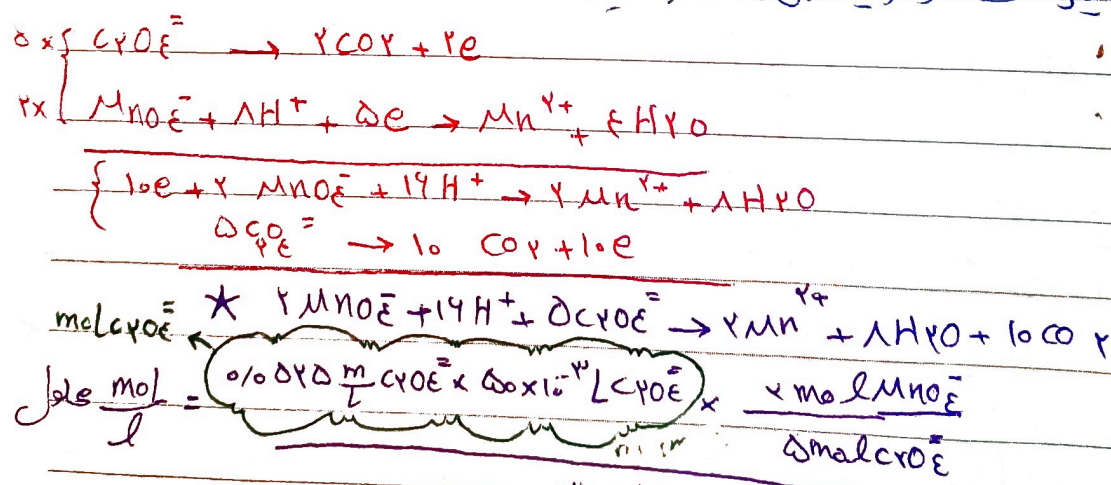 ۵ × { C۲O۴⁼ → ۲CO۲ + ۲e
۲× { MnO۴⁻ + ۸H⁺ + ۵e → Mn²⁺ + ۴H۲O
{ ۱۰e + ۲ MnO۴⁻ + ۱۶H⁺ → ۲Mn²⁺ + ۸H۲O
۵C۲O۴⁼ → ۱۰ CO۲ + ۱۰e
★ ۲MnO۴⁻ + ۱۶H⁺ + ۵C۲O۴⁼ → ۲Mn²⁺ + ۸H۲O + ۱۰CO۲
molC۲O۴⁼
mol/l = ۰/۰۵۲۵ m/L C۲O۴⁼ × ۵۰×۱۰⁻³ L C۲O۴⁼ × ۲ mol MnO۴⁻ / ۵mol C۲O۴⁼